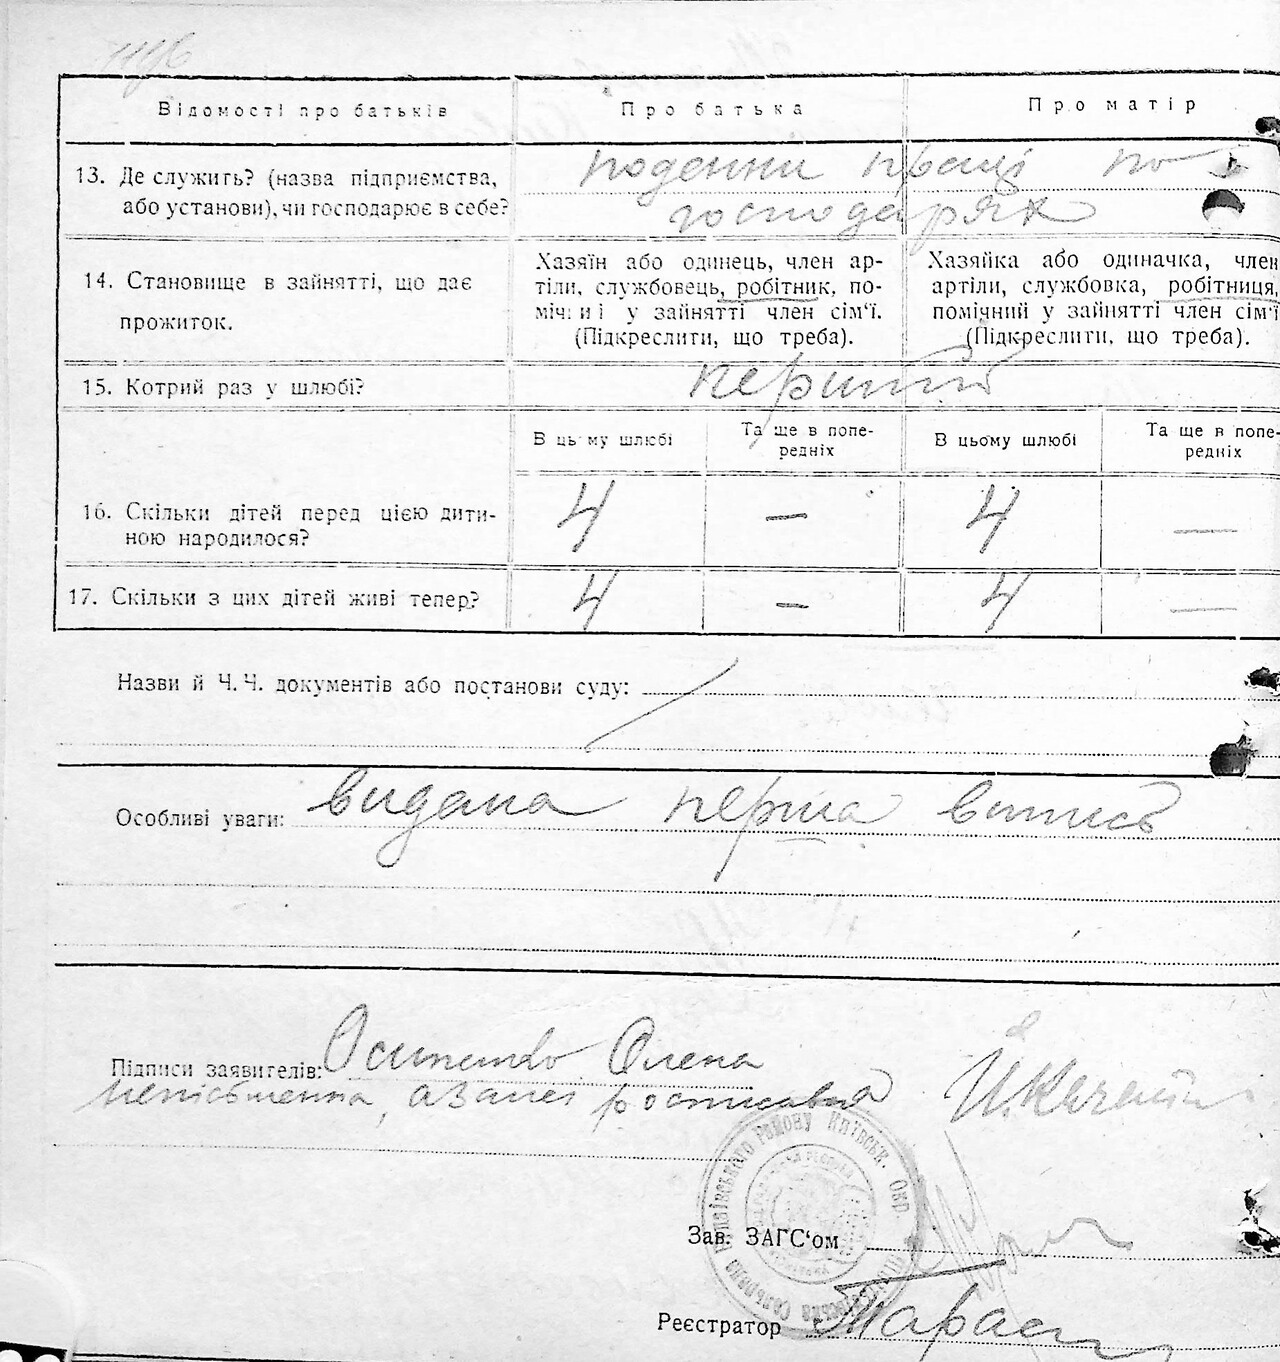 Відомості про батьків
Про батька
Про матір
13. Де служить? (назва підприємства,
або установи), чи господарює в себе?
поденни праці по
господарях
14. Становище в зайнятті, що дає
прожиток.
Хазяїн або одинець, член ар-
тіли, службовець, робітник, по-
міч и і у зайнятті член сім'ї.
(Підкреслити, що треба).
Хазяйка або одиначка, член
артіли, службовка, робітниця,
помічний у зайнятті член сім'ї
(Підкреслити, що треба).
15. Котрий раз у шлюбі?
перший
В ць му шлюбі
Та ще в попе-
редніх
В цьому шлюбі
Та ще в попе-
редніх
16. Скільки дітей перед цією дити-
ною народилося?
4 — 4 —
17. Скільки з цих дітей живі тепер?
4 — 4 —
Назви й Ч. Ч. документів або постанови суду:
Особливі уваги: видана перша випись
Підписи заявителів: Олена
неписьменна,
району Київськ. Окр.
Зав. ЗАГС'ом
Реєстратор